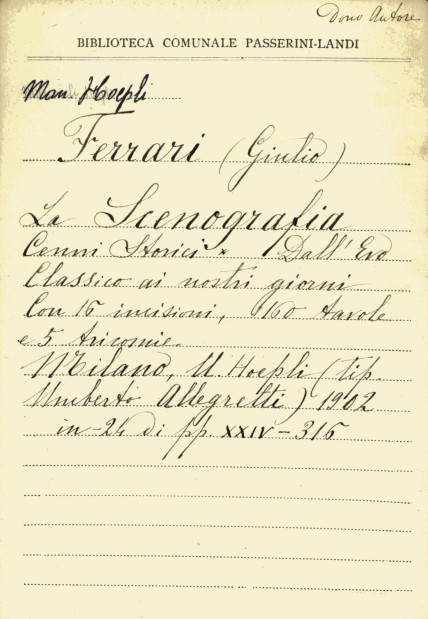 Dono Autore
BIBLIOTECA COMUNALE PASSERINI-LANDI
Man. Hoepli
Ferrari (Giulio)
La Scenografia
Cenni Storici * Dall'Evo
Classico ai nostri giorni
Con 16 incisioni, 160 tavole
e 5 tricomie.
Milano, U. Hoepli (tip.
Umberto Allegretti) 1902
in-24 di pp. XXIV-316